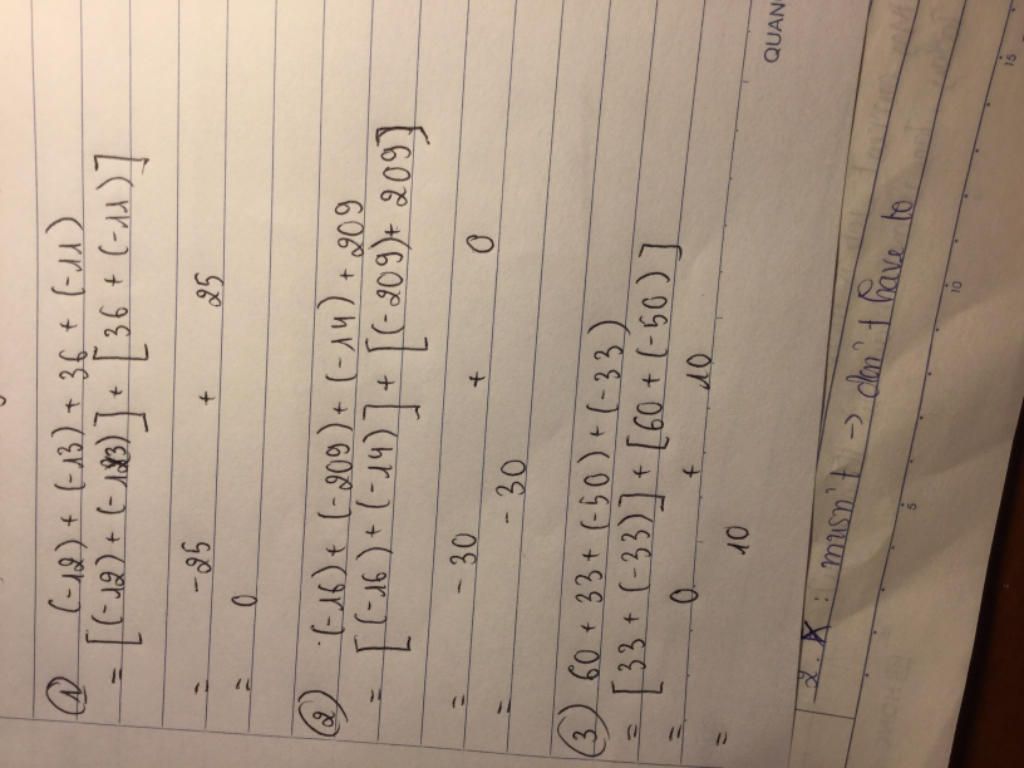 ① (-12) + (-13) + 36 + (-11)
= [(-12) + (-13)] + [36 + (-11)]
= -25 + 25
= 0
② (-16) + (-209) + (-14) + 209
= [(-16) + (-14)] + [(-209) + 209]
= -30 + 0
= -30
③ 60 + 33 + (-50) + (-33)
= [33 + (-33)] + [60 + (-50)]
= 0 + 10
= 10
QUAN
: musn't -> don't have to
5 10 15